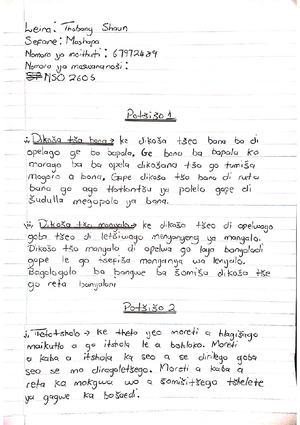 Leina: Thabang Shaun
Sefane: Mashapa
Nomoro ya moithuti: 67972489
Nomoro ya maswanedi:
NSO 2605
Potšišo 1
i. Dikoša tša bana: ke dikoša tšeo bana ba di
opelago ge ba bapala. Ge bana ba bapala ka
morago ba ba opela dikošana tša go tumiša
mogoro a bana. Gape dikoša tša bana di ruta
bana go ago tlotlontšu ya polelo gape di
šudulla megopolo ya bana.
ii. Dikoša tša manyalo: ke dikoša tšeo di opelwago
goba tšeo di letšiwago menyanyeng ya manyalo.
Dikoša tša manyalo di opelwa go laya bangalodi
gape le go tsefiša monyanya wa lenyalo.
Bogologolo ba bangwe ba šomiša dikoša tše
go reta bangaloni
Potšišo 2
i. Tetotshelo → ke theto yeo moreti a hlagišago
maikutlo a go itshola le a bohloko. Moreti
a kaba a itshola ka seo a se dirilego goba
seo se mo diragaletšego. Moreti a kaba a
reta ka mokgwa wo a šomišitšego tshelete
ya gagwe ka bošaedi.